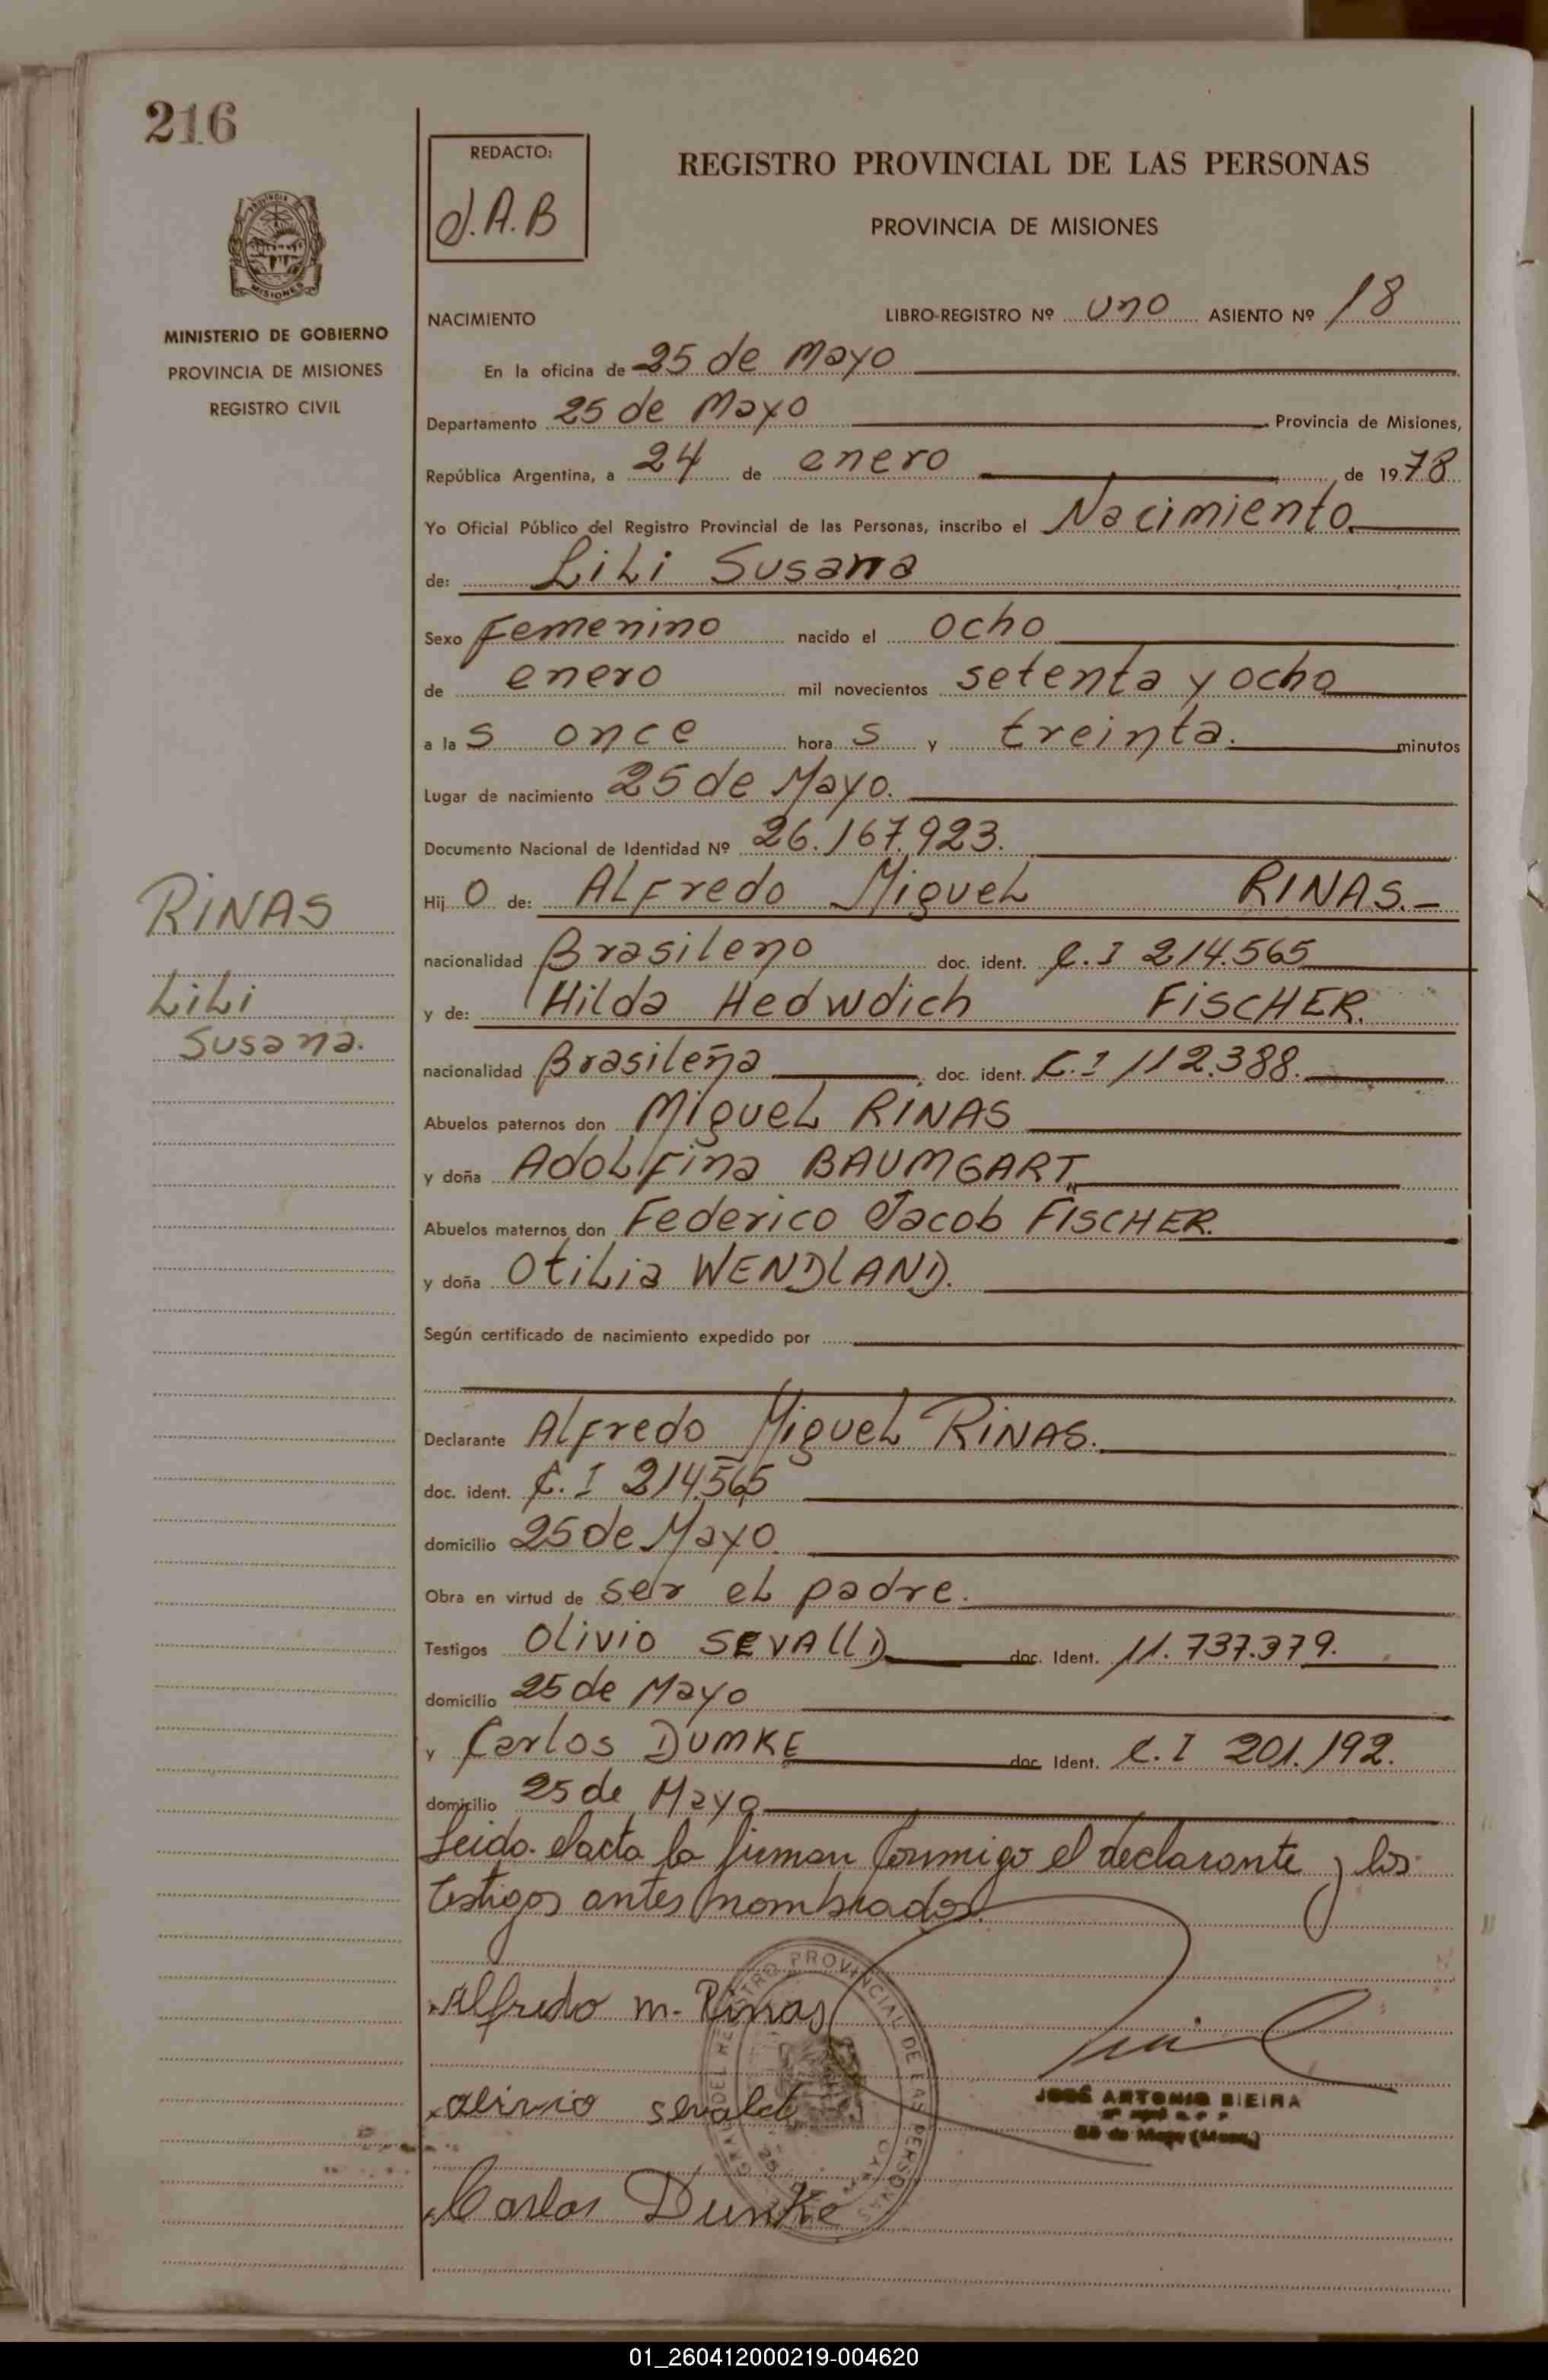 216
REDACTO:
J.A.B
REGISTRO PROVINCIAL DE LAS PERSONAS
PROVINCIA DE MISIONES
MISIONES
MINISTERIO DE GOBIERNO
PROVINCIA DE MISIONES
REGISTRO CIVIL
NACIMIENTO LIBRO-REGISTRO Nº uno ASIENTO Nº 18
En la oficina de 25 de Mayo
Departamento 25 de Mayo Provincia de Misiones,
República Argentina, a 24 de enero de 1978
Yo Oficial Público del Registro Provincial de las Personas, inscribo el Nacimiento
de: LiLi Susana
Sexo Femenino nacido el ocho
de enero mil novecientos setenta y ocho
a la s once hora s y treinta. minutos
Lugar de nacimiento 25 de Mayo.
Documento Nacional de Identidad Nº 26.167.923.
Hij o de: ALFredo MigueL RINAS.-
RINAS
nacionalidad Brasileno doc. ident. C.I 214.565
LiLi
y de: Hilda Hedwdich FiSCHER.
Susana.
nacionalidad Brasileña doc. ident. C.I 112.388.
Abuelos paternos don MigueL RINAS
y doña AdoLFina BAUMGART
Abuelos maternos don Federico Jacob FISCHER.
y doña OtiLia WENDLAND.
Según certificado de nacimiento expedido por
Declarante ALFredo MigueL RiNAS.
doc. ident. C. I 214.565
domicilio 25 de Mayo.
Obra en virtud de ser eL padre.
Testigos OLivio SEVALLD doc. Ident. 11.737.379.
domicilio 25 de Mayo
y Carlos DUMKE doc. Ident. C.I 201.192.
domicilio 25 de Mayo
Leido el acta la firman conmigo el declarante y los
testigos antes nombrados.
Alfredo m. Rinas
JOSÉ ANTONIO BIEIRA
25 de Mayo
olivio sevald
Carlos Dumke
01_260412000219-004620